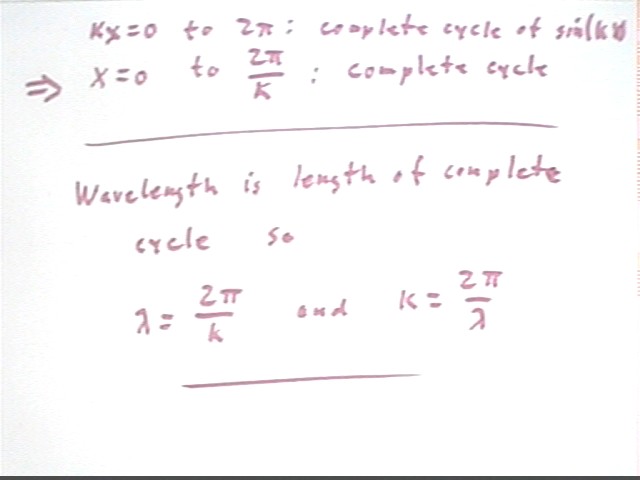 Kx=0 to 2π: complete cycle of sin(kx)
⇒ x=0 to 2π/K : complete cycle
Wavelength is length of complete
cycle so
λ = 2π/k and K = 2π/λ